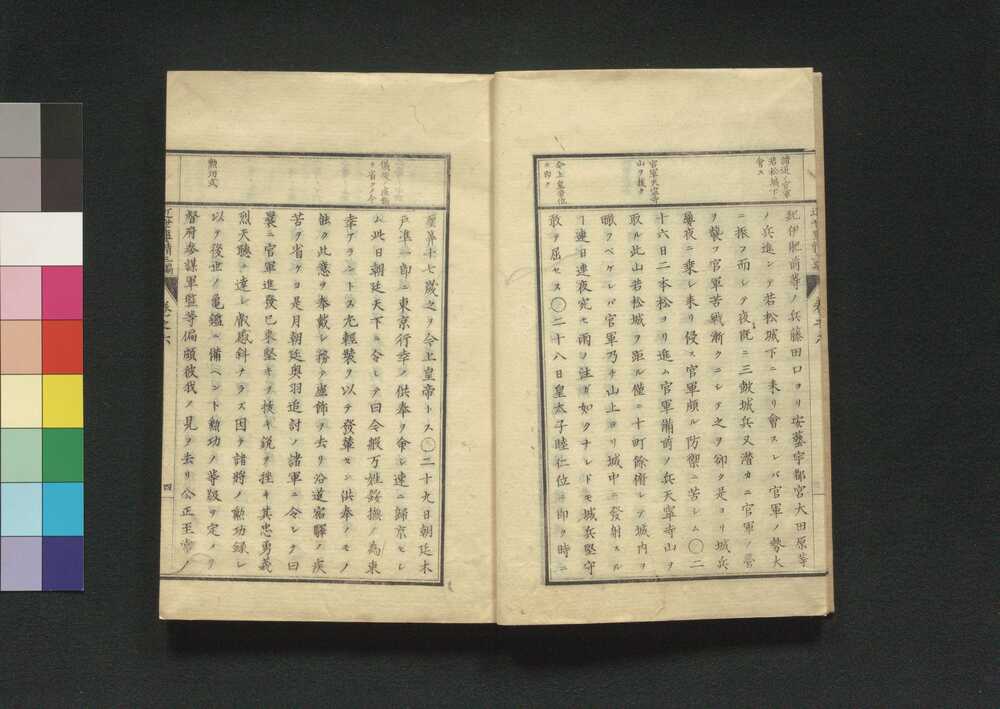 諸道ノ官軍
若松城下ニ
會ス
官軍天寧寺
山ヲ援ク
今上皇帝位
ニ即ク
紀伊肥前等ノ兵藤田口ヨリ安藝宇都宮大田原等
ノ兵進ンテ若松城下ニ来リ會スレバ官軍ノ勢大
ニ振フ而シテ夜既ニ三鼓城兵又潜カニ官軍ノ營
ヲ襲フ官軍苦戦漸クニシテ之ヲ卻ク是ヨリ城兵
暴夜ニ乗シ来リ侵ス官軍頗ル防禦ニ苦シム〇二
十六日二本松ヨリ進ム官軍備前ノ兵天寧寺山ヲ
取ル此山若松城ヲ距ル僅ニ十町餘俯シテ城内ヲ
瞰フベケレバ官軍乃チ山上ヨリ城中ニ發射スル
ヿ連日連夜宛モ雨ノ注ガ如クナレドモ城兵堅守
敢テ屈セス〇二十八日皇太子睦仁位ニ即ク時ニ
勲功式
歳算十七歳之ヲ今上皇帝トス〇二十九日朝廷木
戸準一郎ニ東京行幸ノ供奉ヲ命シ速ニ歸京セシ
ム此日朝廷天下ニ令シテ曰今般万姓綏撫ノ為東
幸アラントス尤輕装ヲ以テ發輦セン供奉ノモノ
能ク此意ヲ奉戴シ務テ虚飾ヲ去リ沿道宿驛ノ疾
苦ヲ省ケヨ是月朝廷奥羽追討ノ諸軍ニ令シテ曰
曩ニ官軍進發已来堅キヲ挨キ鋭ヲ挫キ其忠勇義
烈天聽ニ達シ叡感斜ナラズ因テ諸將ノ勲功録シ
以テ後世ノ亀鑑ニ備ヘント勲功ノ等級ヲ定メリ
督府参謀軍監等偏頗彼我ノ見ヲ去リ公正至當ノ
四